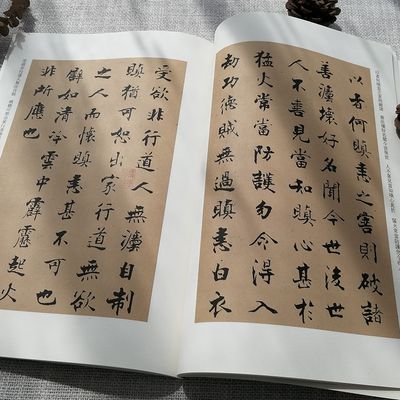 以者何瞋恚之害則破諸
善灋壞好名聞今世後世
人不喜見當知瞋心甚於
猛火常當防護勿令得入
劫功德賊無過瞋恚白衣
受欲非行道人無灋自制
瞋猶可恕出家行道無欲
之人而懷瞋恚甚不可也
譬如清冷雲中霹靂起火
非所應也